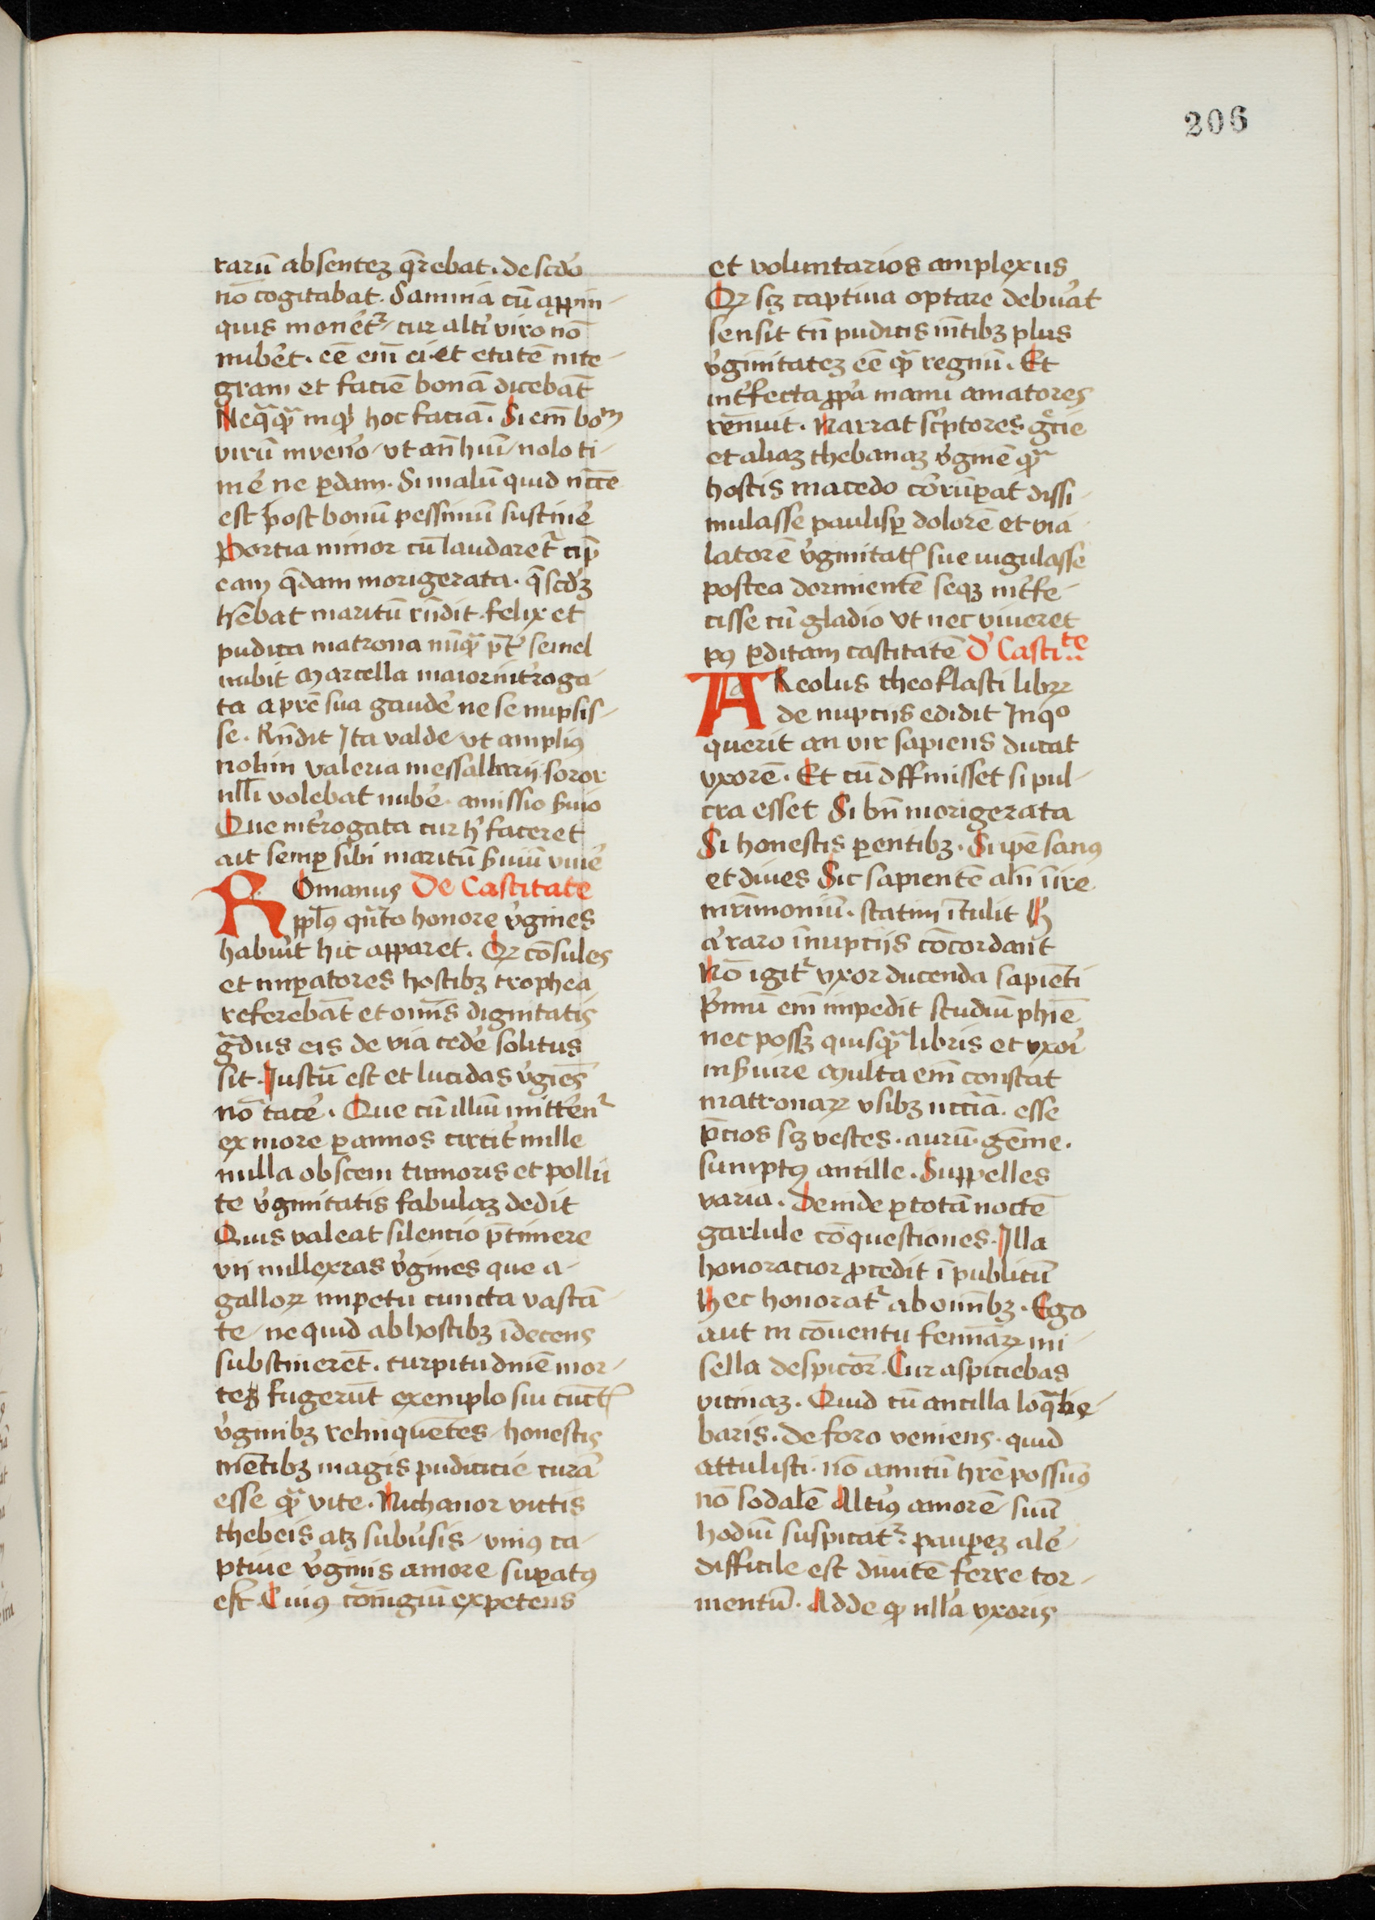 206
rarū absentez q̄rebat. de scd̓o
nō cogitabat. Samnia cū a ꝓpin-
quis monēt᷑ cur alti᷑ viro nō
nub̓et. eē em̄ ei et etatē inte-
gram et faciē bonā dicebāt
Neq̄q̄ꝫ inq̄ hoc faciā. Si em̄ bo᷑m
virū inven̓o ut an̄ hui nolo ti-
m̓e ne ꝑdam. Si malū quid nc̄ce
est post bonū pessimū sustin̓e
Portia minor cū laudaret᷑ cir̄
eam q̄dam morigerata. q̄ scd̓z
h̄ebat maritū rn̄dit. felix et
pudica matrona nūq̄ꝫ pt̄ semel
nubit Marcella maior int̓roga-
ta a prē sua gaud̓e ne se nupsis-
se. Rn̄dit Ita valde ut ampliꝰ
nolim Valeria messallarij soror
nłłi volebat nub̓e. amissio s̓uio
Que int̓rogata cur h̓ faceret
ait semꝑ sibi maritū s̓uiū viu̓e
Romanus De Castitate
ppl̓s q̄to honore v̓gines
habu̓it hic apparet. Qꝛ cōsules
et imꝑatores hostibz trophea
referebāt et oīns dignitatis
gdus eis de via ced̓e solitus
sit. Justū est et lucidas v̓giēs
nō tac̓e. Que cū illiū mitt̓en᷑
ex more ꝑ annos circit̓ mille
nulla obsceni timoris et pollu
te v̓ginitatis fabulaz dedit
Quis valeat silencio p̄t̓mere
vij millexras v̓gines que a-
galloꝝ impetu cuncta vastā-
te. ne quid ab hostibz īdecens
substinerēt. turpitudinē mor-
tez fugerūt exemplo sui cūct᷑
v̓ginibz relinquētes honestis
mētibz magis pudicicie curā
esse q̄ꝫ vite. Nichanor victis
thebeis atz subu̓sis. vniꝰ ca-
ptiue v̓ginis amore suꝑatꝰ
est Cuiꝰ cōiugiū expetens
et voluntarios amplexus
Qꝛ scz captiua optare debu̓at
sensit tn̄ pudicis mētibz plus
v̓ginitatez eē q̄ꝫ regnū. Et
int̓fecta ꝓpa manu amatores
renuit. Narrat sc̓ptores gc̄ie
et aliaz thebanaz v̓ginē q̄ꝫ
hostis macedo corūꝑat dissi-
mulasse paulisꝑ dolorē et via
latorē v̓ginitat᷑ sue iugulasse
postea dormientē seqz int̓fe-
cisse cū gladio ut nec viueret
pꝰ ꝑditam castitatē D̓ Castite
Aeolus theoflasti libꝝ
de nupcijs edidit In qᵒ
querit an vir sapiens ducat
uxorē. Et cū diffinisset si pul-
cra esset Si bn̄ morigerata
Si honestis ꝑentibz. Si ip̄e sanꝰ
et diues Sic sapientē aln̄ īire
mr̄imoniū. statim ītulit H̓
a᷑ raro ī nupcijs cōcordant
Nō igit᷑ uxor ducenda sapiēti
p̓mū em̄ impedit studiū phīe
nec possz quisq̄ꝫ libris et uxoi᷑
ins̓uire Multa em̄ constat
matronaꝝ vsibz nc̄cia. esse
p̄cios scz vestes. aurū. gēme.
sumptꝰ ancille. Suppelles
varia. Deinde ꝑ totā noctē
garlule cōquestiones. Illa
honoracior ꝓcedit ī publicū
Hec honorat᷑ ab oīmbz. Ego
aut in cōuentu feminaꝝ mi-
sella despicor̄. Cur aspiciebas
vicinaz. Quid cū ancilla loq̄bie-
baris. de foro veniens. quid
attulisti. nō amicū h̄re possum̓
nō sodalē Altiꝰ amorē suū
hodiū suspicat᷑. pauꝑez al̓e
difficile est diuitē ferre tor-
mentū. Adde qꝫ nłła uxoris